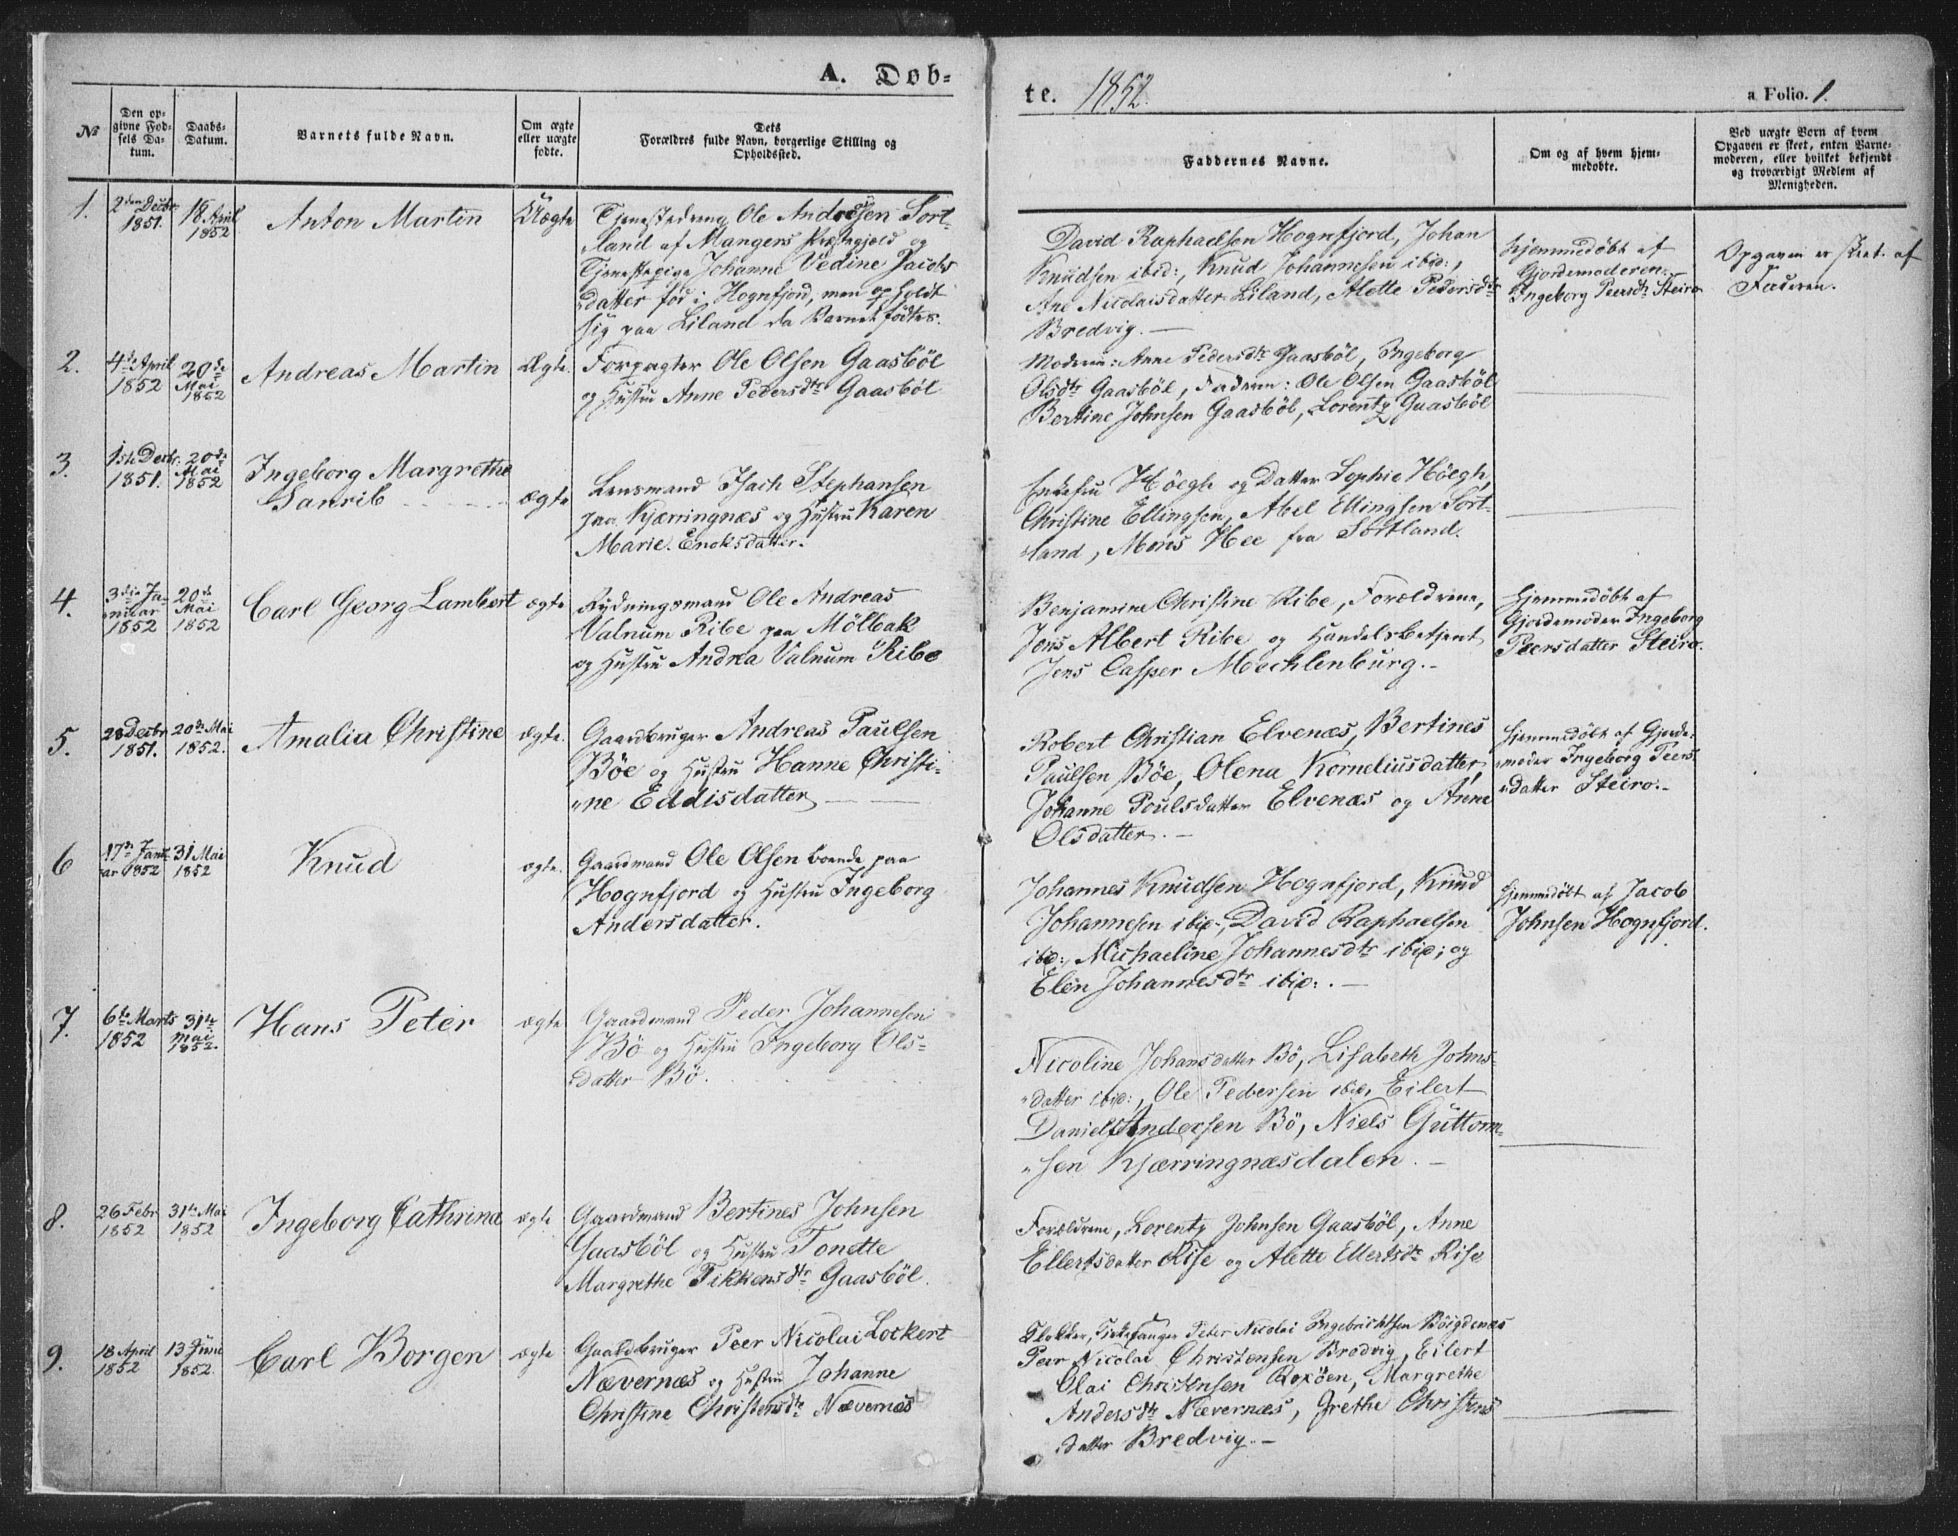 A. Døb-
te. 1852.
a Folio. 1.
No
Den op-
givne Fød-
sels Da-
tum.
Daabs-
Datum.
Barnets fulde Navn.
Om ægte
eller uægte
fødte.
Dets
Forældres fulde Navn, borgerlige Stilling og
Opholdssted.
Faddernes Navne.
Om og af hvem hjem-
medøbte.
Ved uægte Børn af hvem
Opgaven er skeet, enten Barne-
moderen, eller hvilket bekjendt
og troværdigt Medlem af
Menigheden.
1.
2den Decbr
1851.
18. April
1852
Anton Martin
Uægte
Tjenestedreng Ole Andresen Sort-
land af Mangers Præstegjæld og
Tjenestepige Johanne Vedine Jacobs
datter fød i Hognfjord, men opholdt
sig paa Liland da Barnet fødtes.
David Raphaelsen Hognfjord, Johan
Knudsen ibid:, Knud Johannesen ibid:,
Ane Nicolaisdatter Liland, Alette Pedersdtr
Bredvig. —
Hjemmedøbt af
Gjordemoderen
Ingeborg Peersdtr Steiro
Opgaven er skeet af
Faderen.
2.
4de April
1852
20de
Mai
1852
Andreas Martin
Ægte
Forpagter Ole Olsen Gaasbøl
og Hustru Anne Pedersdtr Gaasbøl
Moderen: Anne Pedersdtr Gaasbøl, Ingeborg
Olsdtr Gaasbøl, Faderen: Ole Olsen Gaasbøl
Bertine Johnsen Gaasbøl, Lorentz Gaasbøl
3.
1ste Decbr.
1851.
20de
Mai
1852
Ingeborg Margrethe
Sanrib
ægte
Lensmand Isach Stephansen
paa Kjærringnæs og Hustru Karen
Marie Enoksdatter.
Enkefru Høegh og Datter Sophie Høegh,
Christine Ellingsen, Abel Ellingsen Sort-
land, Mons Hee fra Sortland.
4.
3die Ja-
nuar
1852
20de
Mai
1852
Carl Georg Lambert
ægte
Rydningsmand Ole Andreas
Valnum Ribe paa Mølbak
og Hustru Andrea Valnum Ribe
Benjamine Christine Ribe, Forældrene,
Jens Albert Ribe og Handelsbetjent
Jens Casper Mechlenburg.-
Hjemmedøbt af
Gjordemoder Ingeborg
Peersdatter Steiro.
5.
28 Decbr
1851.
20de Mai
1852.
Amalia Christine
ægte.
Gaardbruger Andreas Paulsen
Bøe og Hustru Hanne Christi-
ne Eddisdatter —
Robert Christian Elvenæs, Bertines
Paulsen Bøe, Olena Korneliusdatter,
Johanne Poulsdatter Elvenæs og Anne
Olsdatter. —
Hjemmedøbt af Gjorde-
moder Ingeborg Peers
datter Steiro.-
6
17de Janu-
ar 1852
31 Mai
1852
Knud
ægte.
Gaardmand Ole Olsen boende paa
Hognfjord og Hustru Ingeborg
Andersdatter.
Johannes Knudsen Hognfjord, Knud
Johannesen ibid:, David Raphaelsen
ibid:, Michaeline Johannesdtr ibid; og
Elen Johannesdtr ibid:. —
Hjemmedøbt af Jacob
Johnsen Hognfjord.
7.
6te Marts
1852
31te
Mai
1852.
Hans Peter
ægte
Gaardmand Peder Johannesen
Bø og Hustru Ingeborg Ols-
datter Bø.
Nicoline Johansdatter Bø, Lisabeth Johns-
datter ibid:, Ole Pedersen ibid, Eilert
Daniels Andersen Bø, Niels Guttorm-
sen Kjærringnæsdalen. —
8.
26 Febr
1852
31te Mai
1852
Ingeborg Cathrina
ægte
Gaardmand Bertines Johnsen
Gaasbøl og Hustru Tonette
Margrethe Tikkensdtr Gaasbøl.
Forældrene, Lorentz Johnsen Gaasbøl, Anne
Ellertsdatter Rise og Alette Ellertsdtr Rise
9.
18 April
1852
13 Juni
1852.
Carl Borgen
ægte
Gaardbruger Peer Nicolai Lockert
Nævernæs og Hustru Johanne
Christine Christensdtr Nævernæs
Klokker, Kirkesanger Peter Nicolai Ingebrichtsen Bøigdenæs
Peer Nicolai Christensen Bredvig, Eilert
Olai Christensen Roxøen, Margrethe
Andersdtr Nævernæs, Grethe Christens
datter Bredvig.-